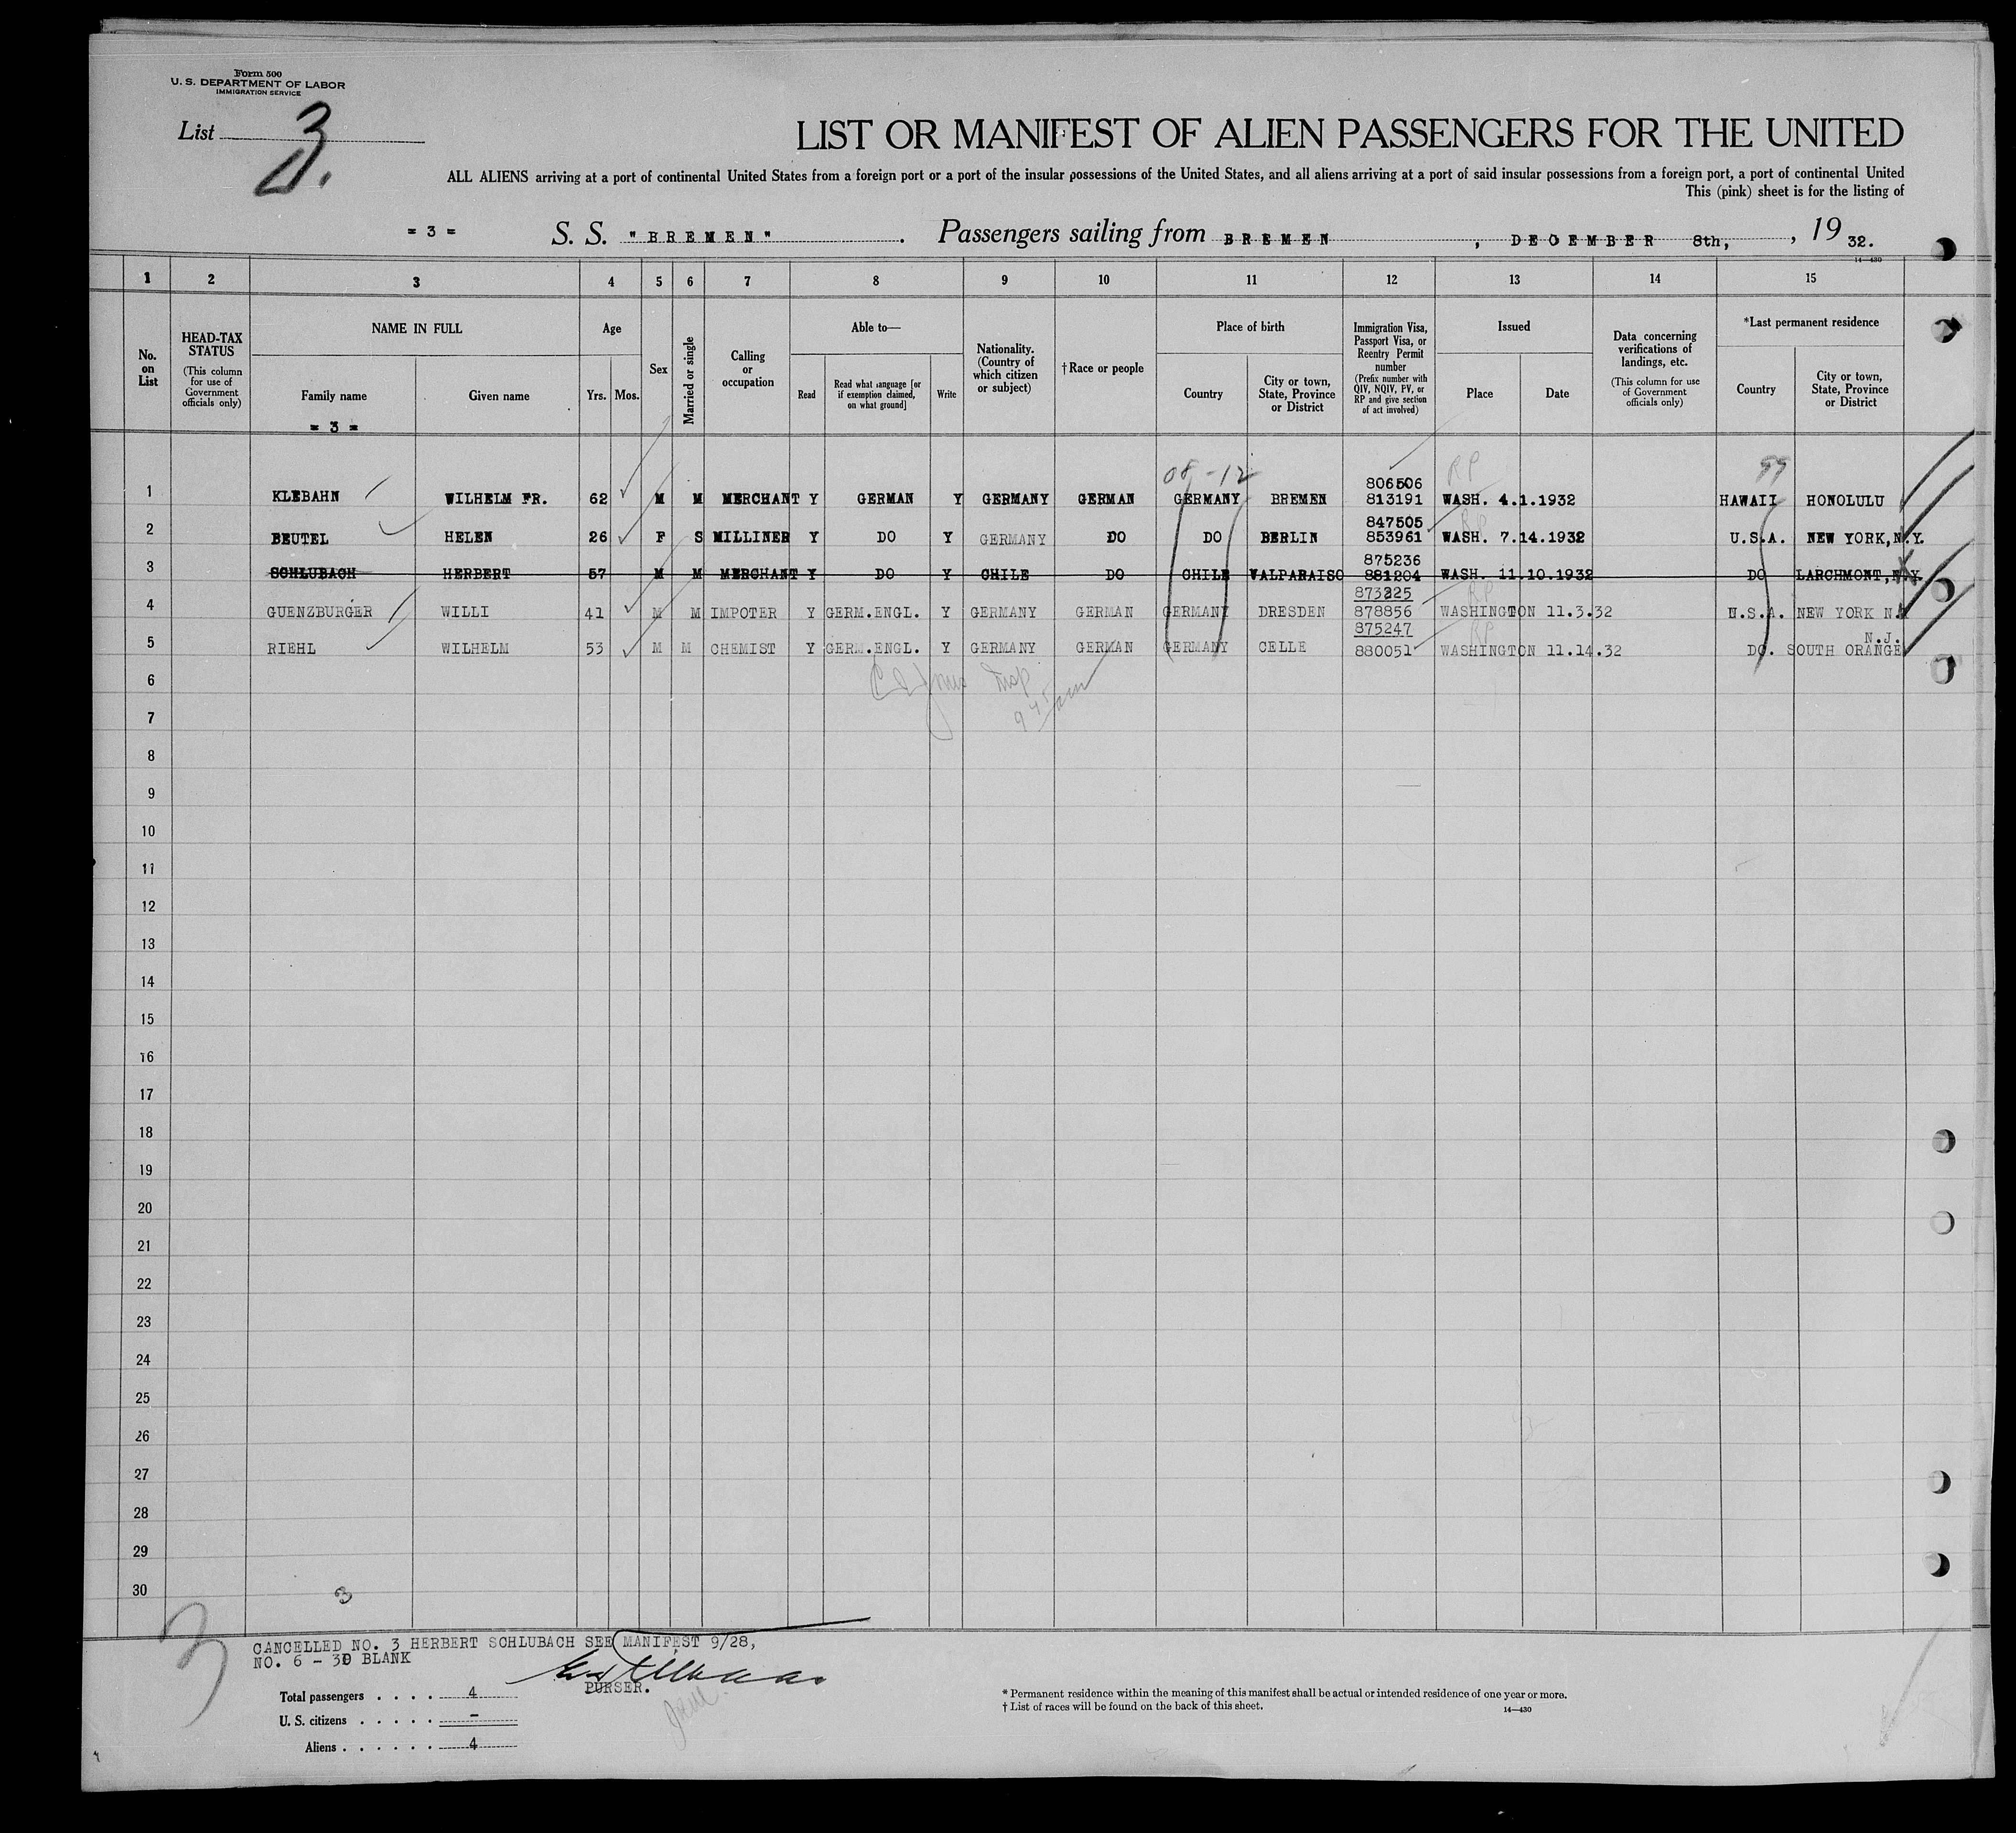 Form 500
U. S. DEPARTMENT OF LABOR
IMMIGRATION SERVICE
List 3
LIST OR MANIFEST OF ALIEN PASSENGERS FOR THE UNITED
ALL ALIENS arriving at a port of continental United States from a foreign port or a port of the insular possessions of the United States, and all aliens arriving at a port of said insular possessions from a foreign port, a port of continental United
This (pink) sheet is for the listing of
= 3 = S. S. "BREMEN". Passengers sailing from BREMEN, DECEMBER 8th, , 19 32.
14—430
1 2 3 4 5 6 7 8 9 10 11 12 13 14 15
No. on List
HEAD-TAX STATUS (This column for use of Government officials only)
NAME IN FULL
Family name
Given name
= 3 =
Age
Yrs. Mos.
Sex
Married or single
Calling or occupation
Able to—
Read
Read what language [or if exemption claimed, on what ground]
Write
Nationality. (Country of which citizen or subject)
† Race or people
Place of birth
Country
City or town, State, Province or District
Immigration Visa, Passport Visa, or Reentry Permit number (Prefix number with QIV, NQIV, PV, or RP and give section of act involved)
Issued
Place
Date
Data concerning verifications of landings, etc. (This column for use of Government officials only)
*Last permanent residence
Country
City or town, State, Province or District
08-12 RP 99
806506
1 KLEBAHN WILHELM FR. 62 M M MERCHANT Y GERMAN Y GERMANY GERMAN GERMANY BREMEN 813191 WASH. 4.1.1932 HAWAII HONOLULU
847505 RP
2 BEUTEL HELEN 26 F S MILLINER Y DO Y GERMANY DO DO BERLIN 853961 WASH. 7.14.1932 U.S.A. NEW YORK, N.Y.
875236
3 SCHLUBACH HERBERT 57 M M MERCHANT Y DO Y CHILE DO CHILE VALPARAISO 881204 WASH. 11.10.1932 DO LARCHMONT, N.Y.
873225 RP
4 GUENZBURGER WILLI 41 M M IMPOTER Y GERM.ENGL. Y GERMANY GERMAN GERMANY DRESDEN 878856 WASHINGTON 11.3.32 U.S.A. NEW YORK N.Y
875247 RP N.J.
5 RIEHL WILHELM 53 M M CHEMIST Y GERM.ENGL. Y GERMANY GERMAN GERMANY CELLE 880051 WASHINGTON 11.14.32 DO. SOUTH ORANGE
6 Insp
7 9 45 am
8
9
10
11
12
13
14
15
16
17
18
19
20
21
22
23
24
25
26
27
28
29
30
3
3
CANCELLED NO. 3 HERBERT SCHLUBACH SEE MANIFEST 9/28,
NO. 6 - 30 BLANK
PURSER.
Total passengers . . . . 4
U. S. citizens . . . . . -
Aliens . . . . . . 4
* Permanent residence within the meaning of this manifest shall be actual or intended residence of one year or more.
† List of races will be found on the back of this sheet.
14—430